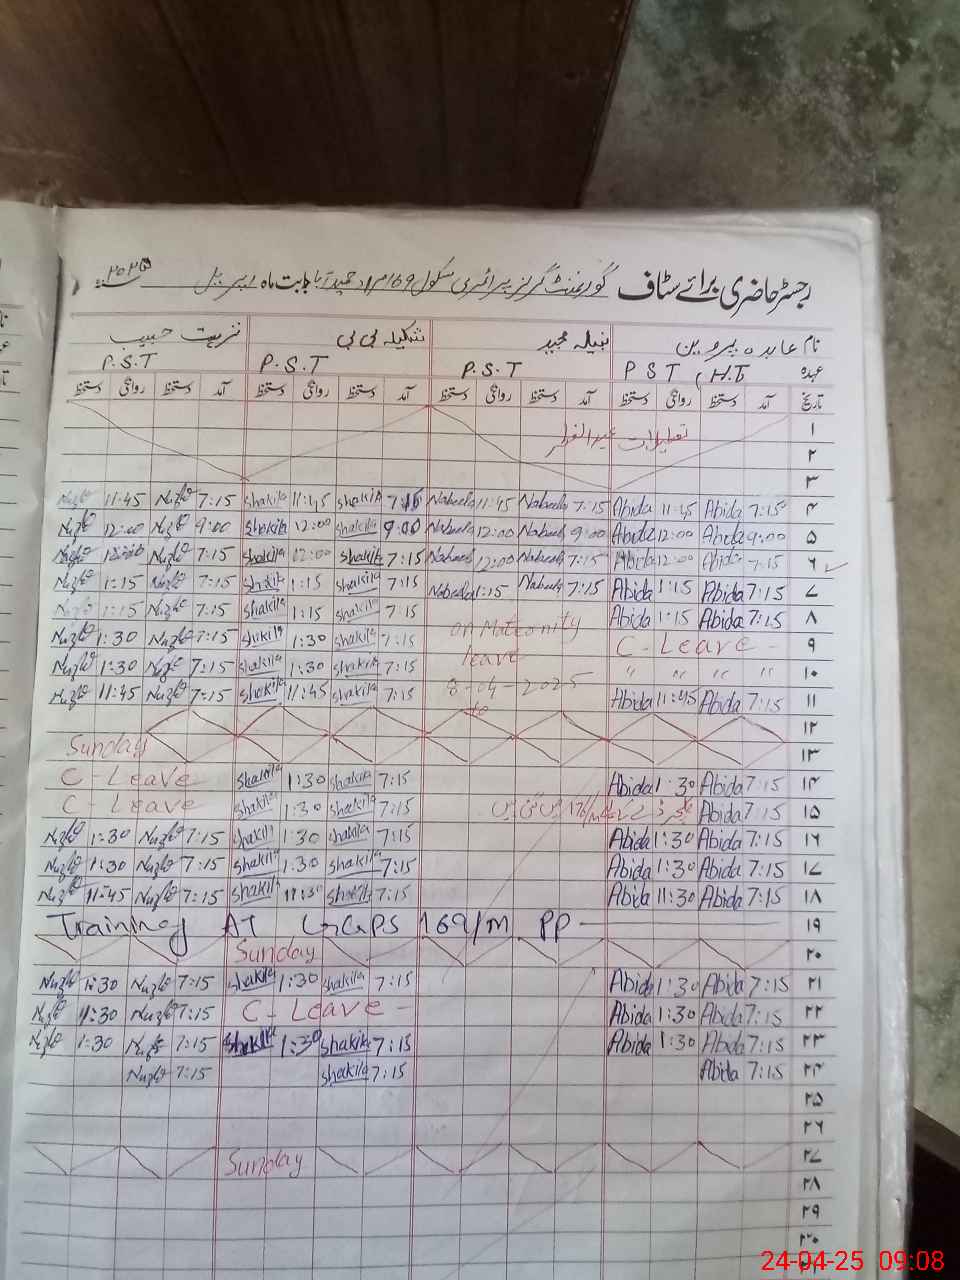 رجسٹر حاضری برائے سٹاف گورنمنٹ گرلز پرائمری سکول 169/م بابت ماہ اپریل ۲۰۲۵
نام عابدہ پروین نبیلہ مجید شکیلہ بی بی نزہت حبیب
عہدہ P S T (H.T P.S.T P.S.T P.S.T
تاریخ آمد دستخط روانگی دستخط آمد دستخط روانگی دستخط آمد دستخط روانگی دستخط آمد دستخط روانگی دستخط
۱ تعطیلات عیدالفطر
۲
۳
Nuzhat 11:45 Nuzhat 7:15 Shakila 11:45 Shakila 7:15 Nabeela 11:45 Nabeela 7:15 Abida 11:45 Abida 7:15 ۴
Nuzhat 12:00 Nuzhat 9:00 Shakila 12:00 Shakila 9:00 Nabeela 12:00 Nabeela 9:00 Abida 12:00 Abida 9:00 ۵
Nuzhat 12:00 Nuzhat 7:15 Shakila 12:00 Shakila 7:15 Nabeela 12:00 Nabeela 7:15 Abida 12:00 Abida 7:15 ۶
Nuzhat 1:15 Nuzhat 7:15 Shakila 1:15 Shakila 7:15 Nabeela 1:15 Nabeela 7:15 Abida 1:15 Abida 7:15 ۷
Nuzhat 1:15 Nuzhat 7:15 Shakila 1:15 Shakila 7:15 on Maternity Abida 1:15 Abida 7:15 ۸
Nuzhat 1:30 Nuzhat 7:15 Shakila 1:30 Shakila 7:15 leave C - Leave - ۹
Nuzhat 1:30 Nuzhat 7:15 Shakila 1:30 Shakila 7:15 8-04-2025 " " " " ۱۰
Nuzhat 11:45 Nuzhat 7:15 Shakila 11:45 Shakila 7:15 to Abida 11:45 Abida 7:15 ۱۱
۱۲
Sunday ۱۳
C - Leave Shakila 1:30 Shakila 7:15 Abida 1:30 Abida 7:15 ۱۴
C - Leave Shakila 1:30 Shakila 7:15 Abida 7:15 ۱۵
Nuzhat 1:30 Nuzhat 7:15 Shakila 1:30 Shakila 7:15 Abida 1:30 Abida 7:15 ۱۶
Nuzhat 1:30 Nuzhat 7:15 Shakila 1:30 Shakila 7:15 Abida 1:30 Abida 7:15 ۱۷
Nuzhat 11:45 Nuzhat 7:15 Shakila 11:30 Shakila 7:15 Abida 11:30 Abida 7:15 ۱۸
Training AT GGPS 169/m PP - ۱۹
Sunday ۲۰
Nuzhat 1:30 Nuzhat 7:15 Shakila 1:30 Shakila 7:15 Abida 1:30 Abida 7:15 ۲۱
Nuzhat 1:30 Nuzhat 7:15 C - Leave - Abida 1:30 Abida 7:15 ۲۲
Nuzhat 1:30 Nuzhat 7:15 Shakila 1:30 Shakila 7:15 Abida 1:30 Abida 7:15 ۲۳
Nuzhat 7:15 Shakila 7:15 Abida 7:15 ۲۴
۲۵
۲۶
Sunday ۲۷
۲۸
۲۹
۳۰
24-04-25 09:08